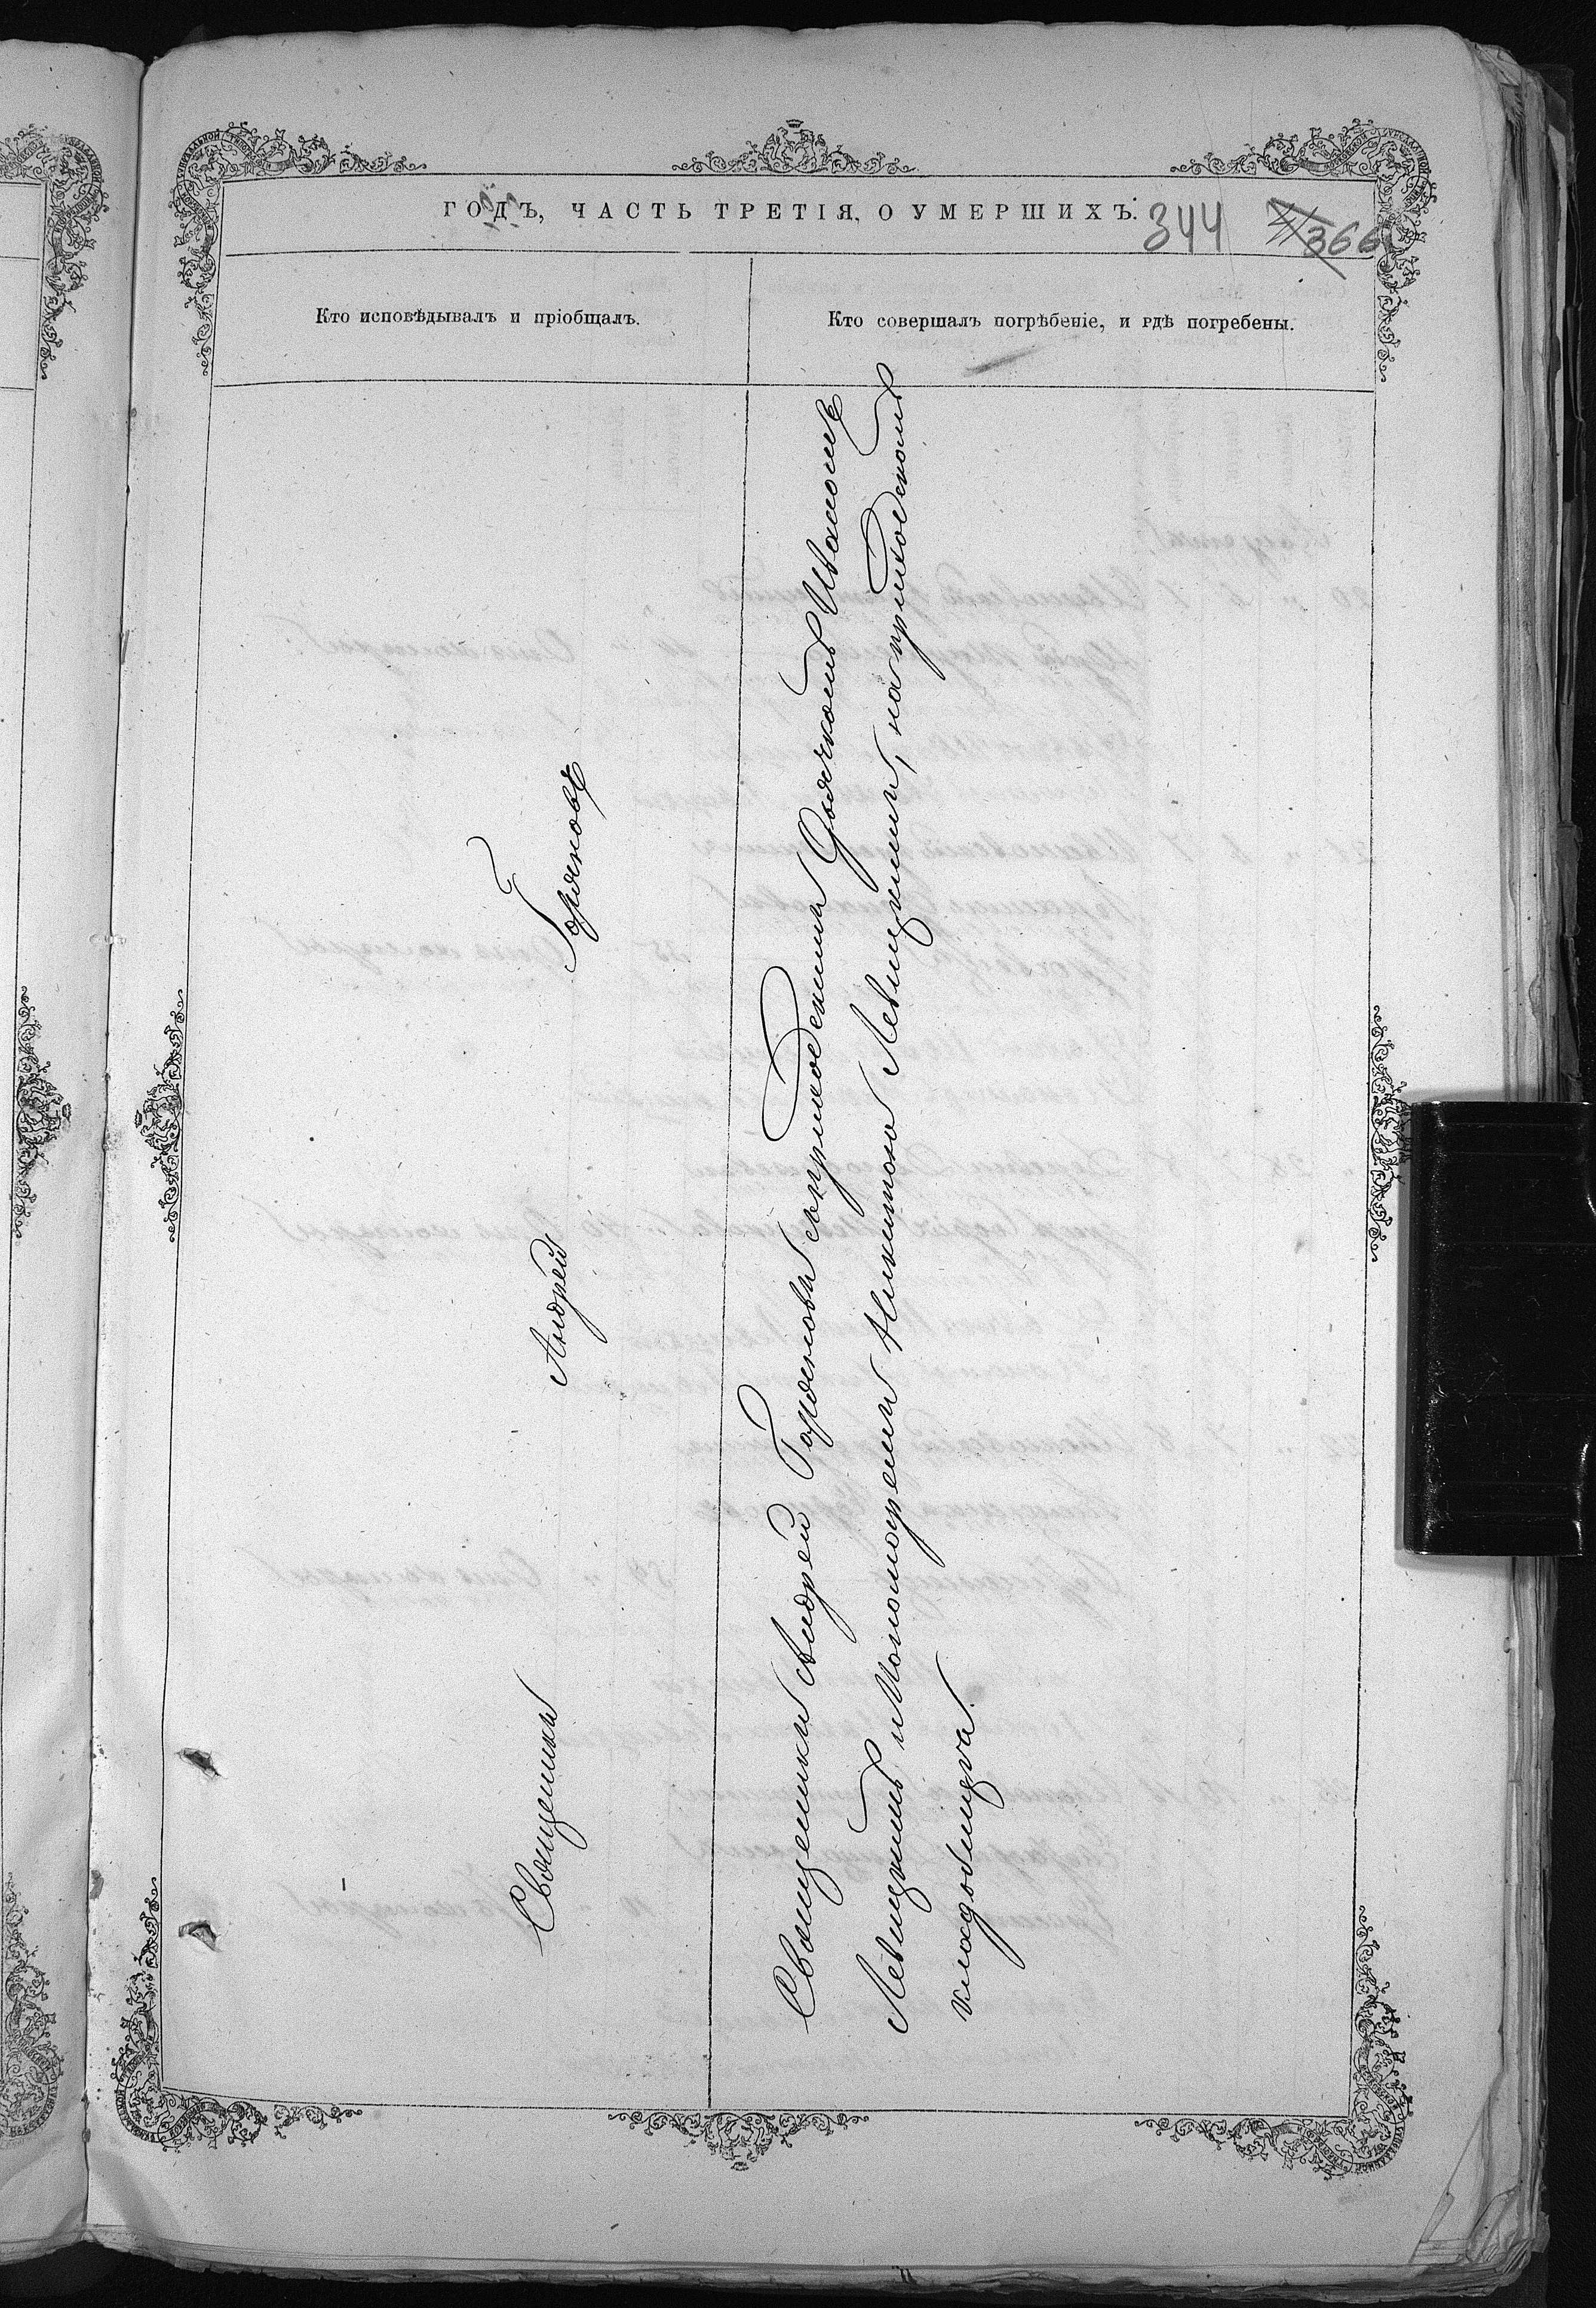 ГОДЪ, ЧАСТЬ ТРЕТІЯ, О УМЕРШИХЪ.
344
366
Кто исповѣдывалъ и пріобщалъ.
Кто совершалъ погрѣбеніе, и гдѣ погребены.
Священикъ Андрей Горденовъ
Священикъ Андрей Горденовъ съ приходскимъ Дьячкомъ Иваномъ
Левицкимъ и Пономаремъ Никитою Левицкимъ, на приходскомъ
кладбищѣ